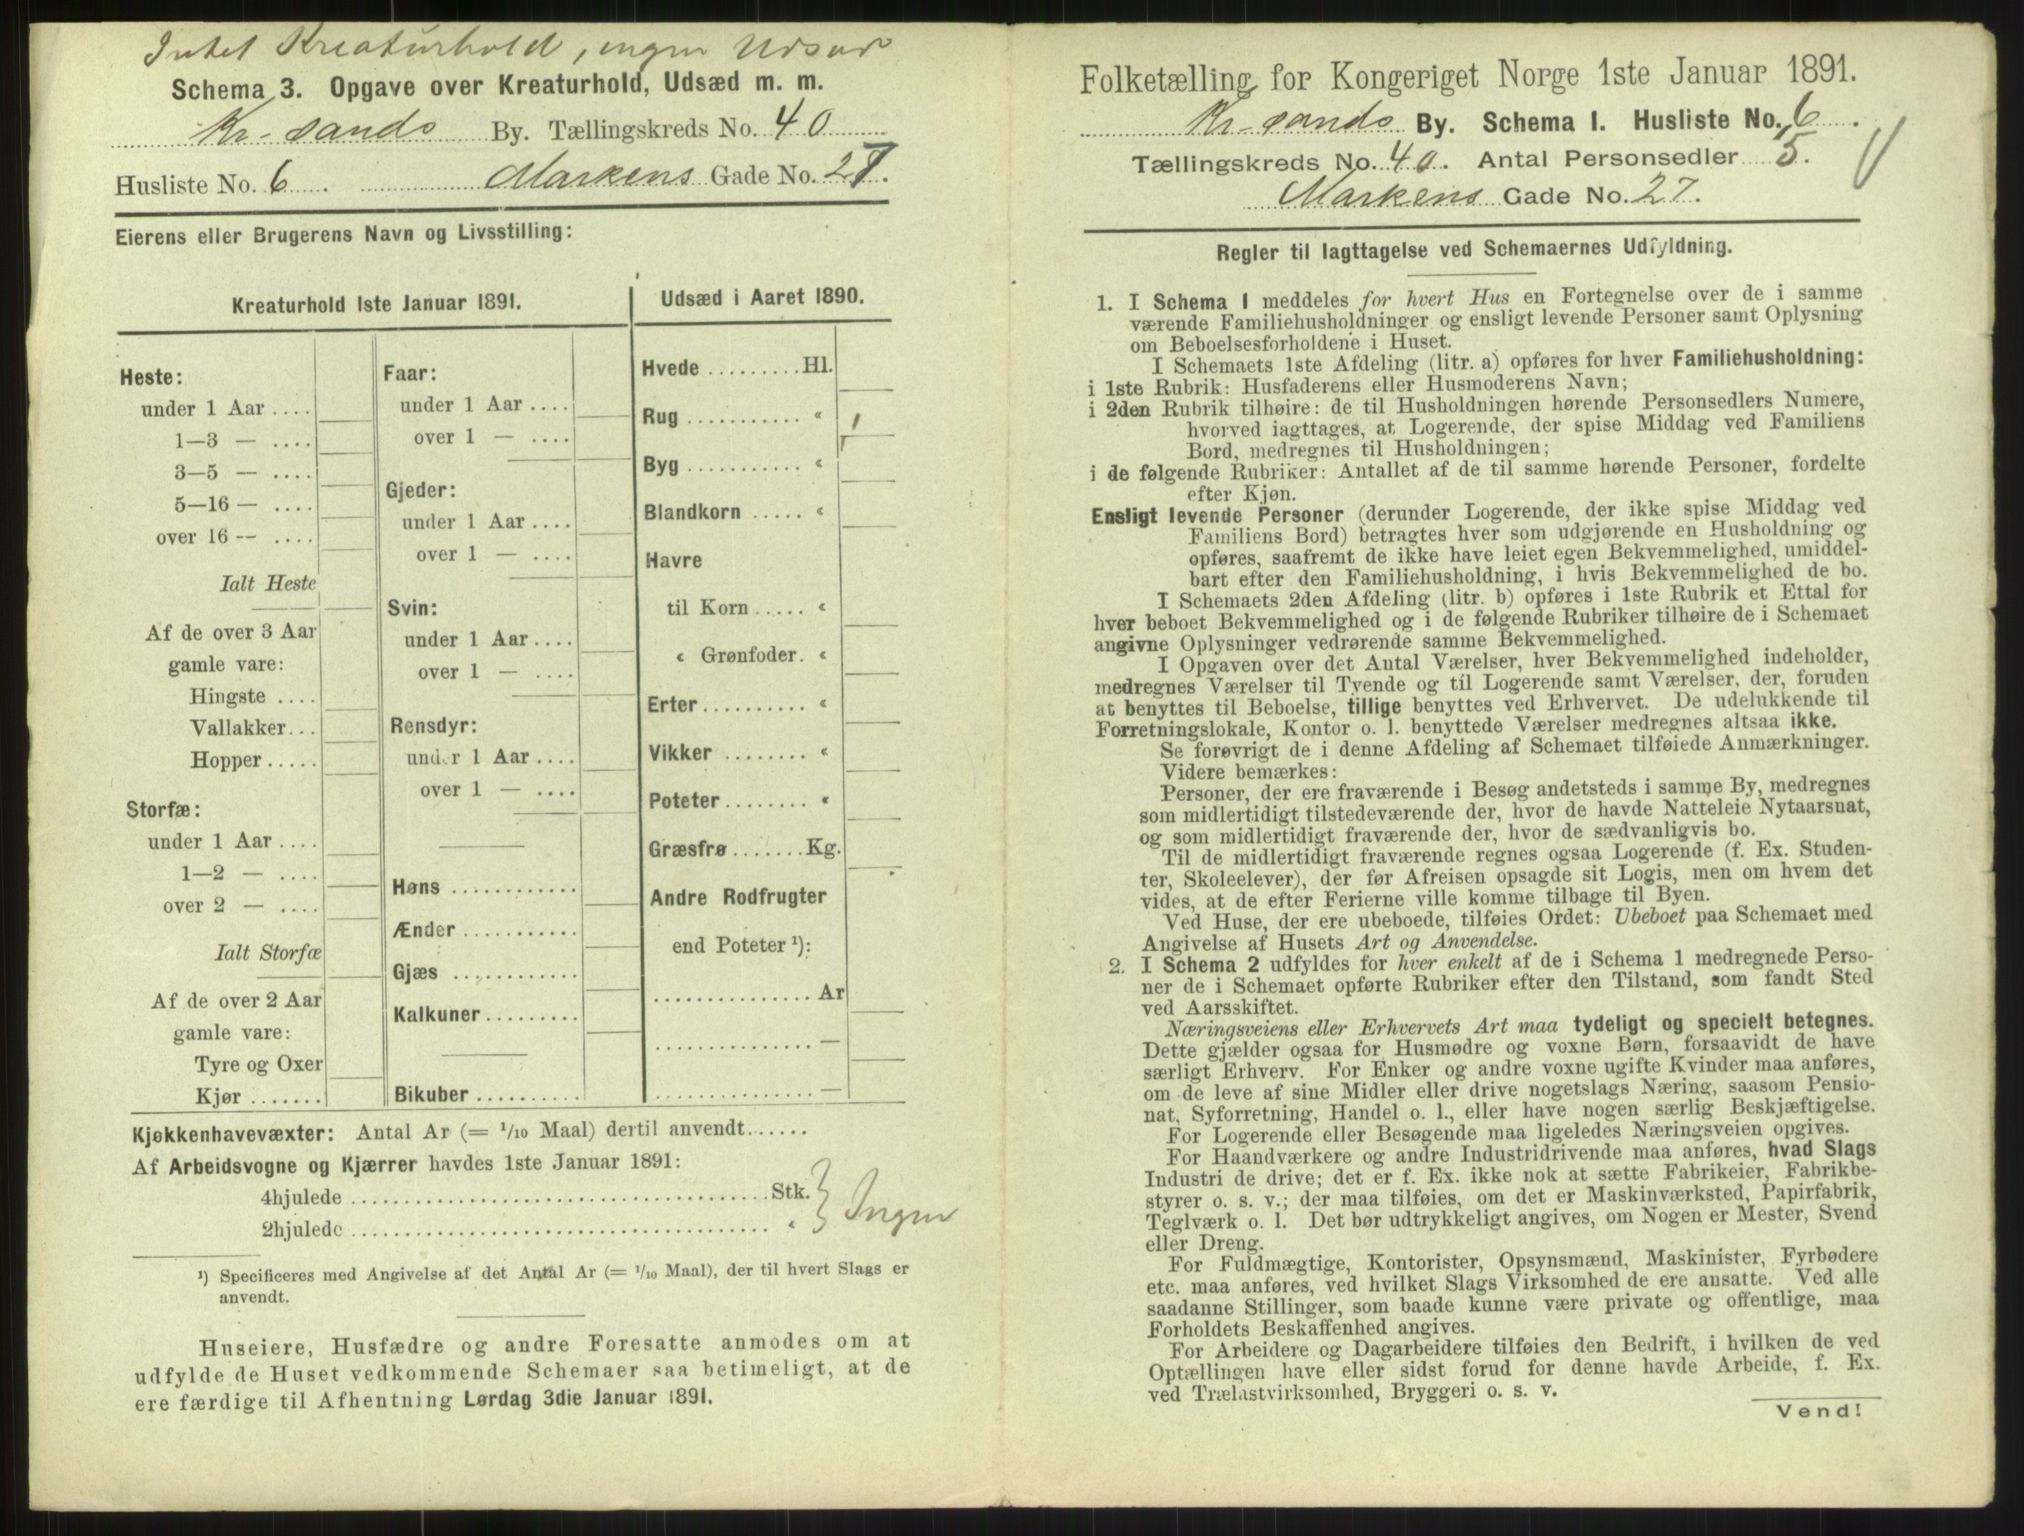 Intet Kreaturhold, ingen Udsæd
Schema 3. Opgave over Kreaturhold, Udsæd m. m.
Kr-sands By. Tællingskreds No. 40
Husliste No. 6. Markens Gade No. 27.
Eierens eller Brugerens Navn og Livsstilling:
Kreaturhold 1ste Januar 1891.
Heste:
under 1 Aar ....
1—3 — ....
3—5 — ....
5—16 — ....
over 16 — ....
Ialt Heste
Af de over 3 Aar
gamle vare:
Hingste ....
Vallakker...
Hopper.....
Storfæ:
under 1 Aar ....
1—2 — ....
over 2 — ....
Ialt Storfæ
Af de over 2 Aar
gamle vare:
Tyre og Oxer
Kjør .......
Faar:
under 1 Aar ....
over 1 — ....
Gjeder:
under 1 Aar ....
over 1 — ....
Svin:
under 1 Aar ....
over 1 — ....
Rensdyr:
under 1 Aar ....
over 1 — ....
Høns ............
Ænder ...........
Gjæs ............
Kalkuner.........
Bikuber ..........
Udsæd i Aaret 1890.
Hvede .........Hl.
Rug ........... "
Byg ........... "
Blandkorn ..... "
Havre
til Korn ..... "
" Grønfoder. "
Erter.......... "
Vikker ........ "
Poteter........ "
Græsfrø .......Kg.
Andre Rodfrugter
end Poteter ¹):
...............Ar
............... —
............... —
Kjøkkenhavevæxter: Antal Ar (= 1/10 Maal) dertil anvendt......
Af Arbeidsvogne og Kjærrer havdes 1ste Januar 1891:
4hjulede ......................................Stk.
2hjulede ...................................... "
} Ingen
¹) Specificeres med Angivelse af det Antal Ar (= 1/10 Maal), der til hvert Slags er
anvendt.
Huseiere, Husfædre og andre Foresatte anmodes om at
udfylde de Huset vedkommende Schemaer saa betimeligt, at de
ere færdige til Afhentning Lørdag 3die Januar 1891.
Folketælling for Kongeriget Norge 1ste Januar 1891.
Kr-sands By. Schema 1. Husliste No. 6.
Tællingskreds No. 40. Antal Personsedler 15.
Markens Gade No. 27.
Regler til Iagttagelse ved Schemaernes Udfyldning.
1. I Schema 1 meddeles for hvert Hus en Fortegnelse over de i samme
værende Familiehusholdninger og ensligt levende Personer samt Oplysning
om Beboelsesforholdene i Huset.
I Schemaets 1ste Afdeling (litr. a) opføres for hver Familiehusholdning:
i 1ste Rubrik: Husfaderens eller Husmoderens Navn;
i 2den Rubrik tilhøire: de til Husholdningen hørende Personsedlers Numere,
hvorved iagttages, at Logerende, der spise Middag ved Familiens
Bord, medregnes til Husholdningen;
i de følgende Rubriker: Antallet af de til samme hørende Personer, fordelte
efter Kjøn.
Ensligt levende Personer (derunder Logerende, der ikke spise Middag ved
Familiens Bord) betragtes hver som udgjørende en Husholdning og
opføres, saafremt de ikke have leiet egen Bekvemmelighed, umiddel-
bart efter den Familiehusholdning, i hvis Bekvemmelighed de bo.
I Schemaets 2den Afdeling (litr. b) opføres i 1ste Rubrik et Ettal for
hver beboet Bekvemmelighed og i de følgende Rubriker tilhøire de i Schemaet
angivne Oplysninger vedrørende samme Bekvemmelighed.
I Opgaven over det Antal Værelser, hver Bekvemmelighed indeholder,
medregnes Værelser til Tyende og til Logerende samt Værelser, der, foruden
at benyttes til Beboelse, tillige benyttes ved Erhvervet. De udelukkende til
Forretningslokale, Kontor o. l. benyttede Værelser medregnes altsaa ikke.
Se forøvrigt de i denne Afdeling af Schemaet tilføiede Anmærkninger.
Videre bemærkes:
Personer, der ere fraværende i Besøg andetsteds i samme By, medregnes
som midlertidigt tilstedeværende der, hvor de havde Natteleie Nytaarsnat,
og som midlertidigt fraværende der, hvor de sædvanligvis bo.
Til de midlertidigt fraværende regnes ogsaa Logerende (f. Ex. Studen-
ter, Skoleelever), der før Afreisen opsagde sit Logis, men om hvem det
vides, at de efter Ferierne ville komme tilbage til Byen.
Ved Huse, der ere ubeboede, tilføies Ordet: Ubeboet paa Schemaet med
Angivelse af Husets Art og Anvendelse.
2. I Schema 2 udfyldes for hver enkelt af de i Schema 1 medregnede Perso-
ner de i Schemaet opførte Rubriker efter den Tilstand, som fandt Sted
ved Aarsskiftet.
Næringsveiens eller Erhvervets Art maa tydeligt og specielt betegnes.
Dette gjælder ogsaa for Husmødre og voxne Børn, forsaavidt de have
særligt Erhverv. For Enker og andre voxne ugifte Kvinder maa anføres,
om de leve af sine Midler eller drive nogetslags Næring, saasom Pensio-
nat, Syforretning, Handel o. l., eller have nogen særlig Beskjæftigelse.
For Logerende eller Besøgende maa ligeledes Næringsveien opgives.
For Haandværkere og andre Industridrivende maa anføres, hvad Slags
Industri de drive; det er f. Ex. ikke nok at sætte Fabrikeier, Fabrikbe-
styrer o. s. v.; der maa tilføies, om det er Maskinværksted, Papirfabrik,
Teglværk o. l. Det bør udtrykkeligt angives, om Nogen er Mester, Svend
eller Dreng.
For Fuldmægtige, Kontorister, Opsynsmænd, Maskinister, Fyrbødere
etc. maa anføres, ved hvilket Slags Virksomhed de ere ansatte. Ved alle
saadanne Stillinger, som baade kunne være private og offentlige, maa
Forholdets Beskaffenhed angives.
For Arbeidere og Dagarbeidere tilføies den Bedrift, i hvilken de ved
Optællingen have eller sidst forud for denne havde Arbeide, f. Ex.
ved Trælastvirksomhed, Bryggeri o. s. v.
Vend!